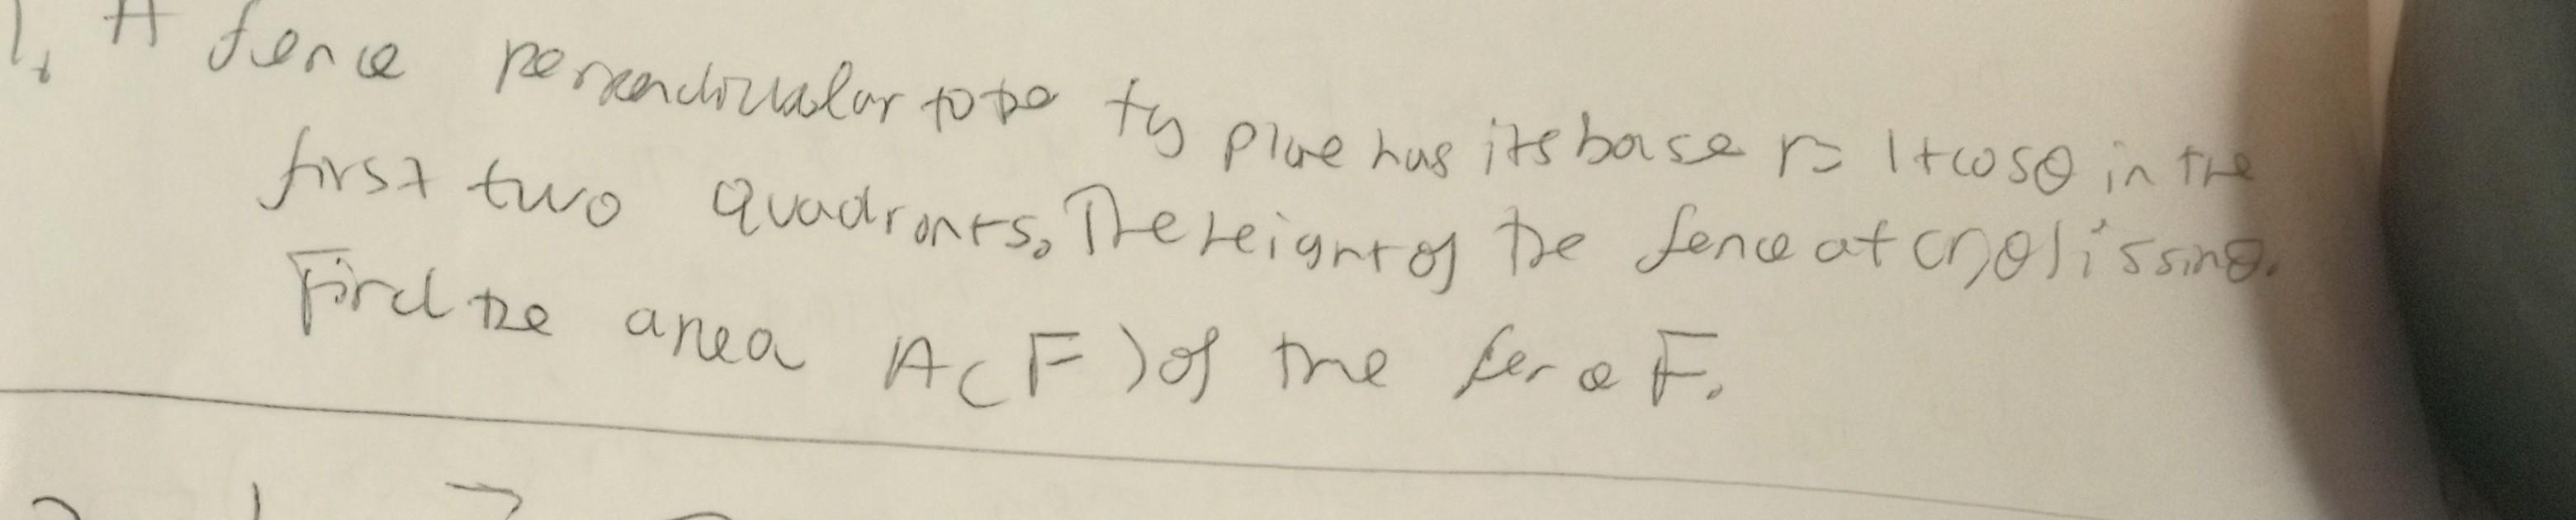 1. A fence perpendicular to the xy plane has its base r = 1+cosθ in the
first two quadrants. The height of the fence at (r,θ) is sinθ.
Find the area A(F) of the fence F.